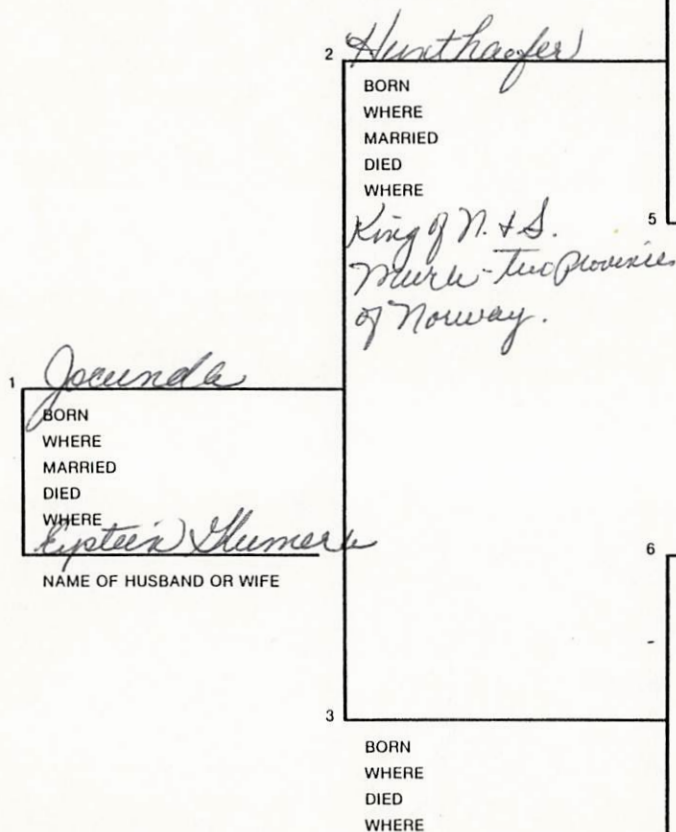 2 Hunthaofer
BORN
WHERE
MARRIED
DIED
WHERE
King of N. & S.
Murle - Two Provinces
of Norway.
5
1 Jocunda
BORN
WHERE
MARRIED
DIED
WHERE
Eystein Glumerle
NAME OF HUSBAND OR WIFE
6
3
BORN
WHERE
DIED
WHERE